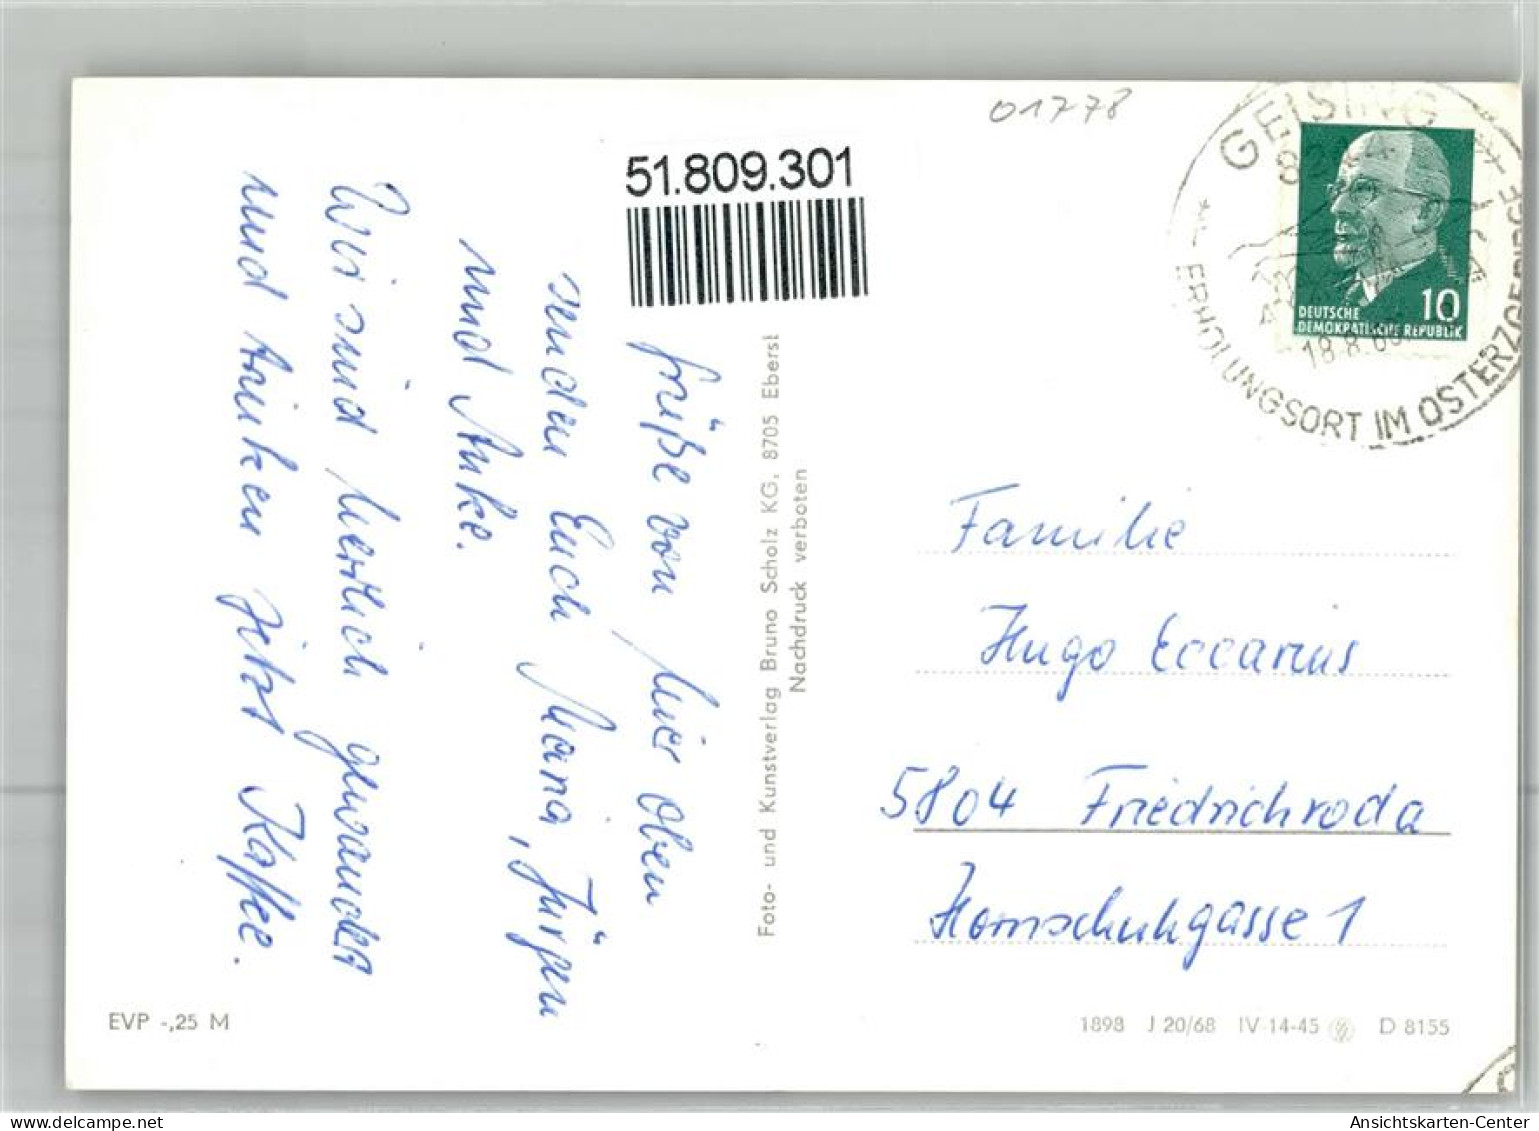 01778
51.809.301
GEISING
8244
18.8.
ERHOLUNGSORT IM OSTERZGEBIRGE
10
DEUTSCHE
DEMOKRATISCHE REPUBLIK
Grüße von hier oben
senden Euch Maria, Jürgen
und Anke.
Wir sind herrlich gewandert
und trinken jetzt Kaffee.
Foto- und Kunstverlag Bruno Scholz KG, 8705 Ebersl
Nachdruck verboten
Familie
Hugo Eccarius
5804 Friedrichroda
Hornschuhgasse 1
EVP -,25 M
1898 J 20/68 IV-14-45 D 8155
oldthing.de
Ansichtskarten-Center